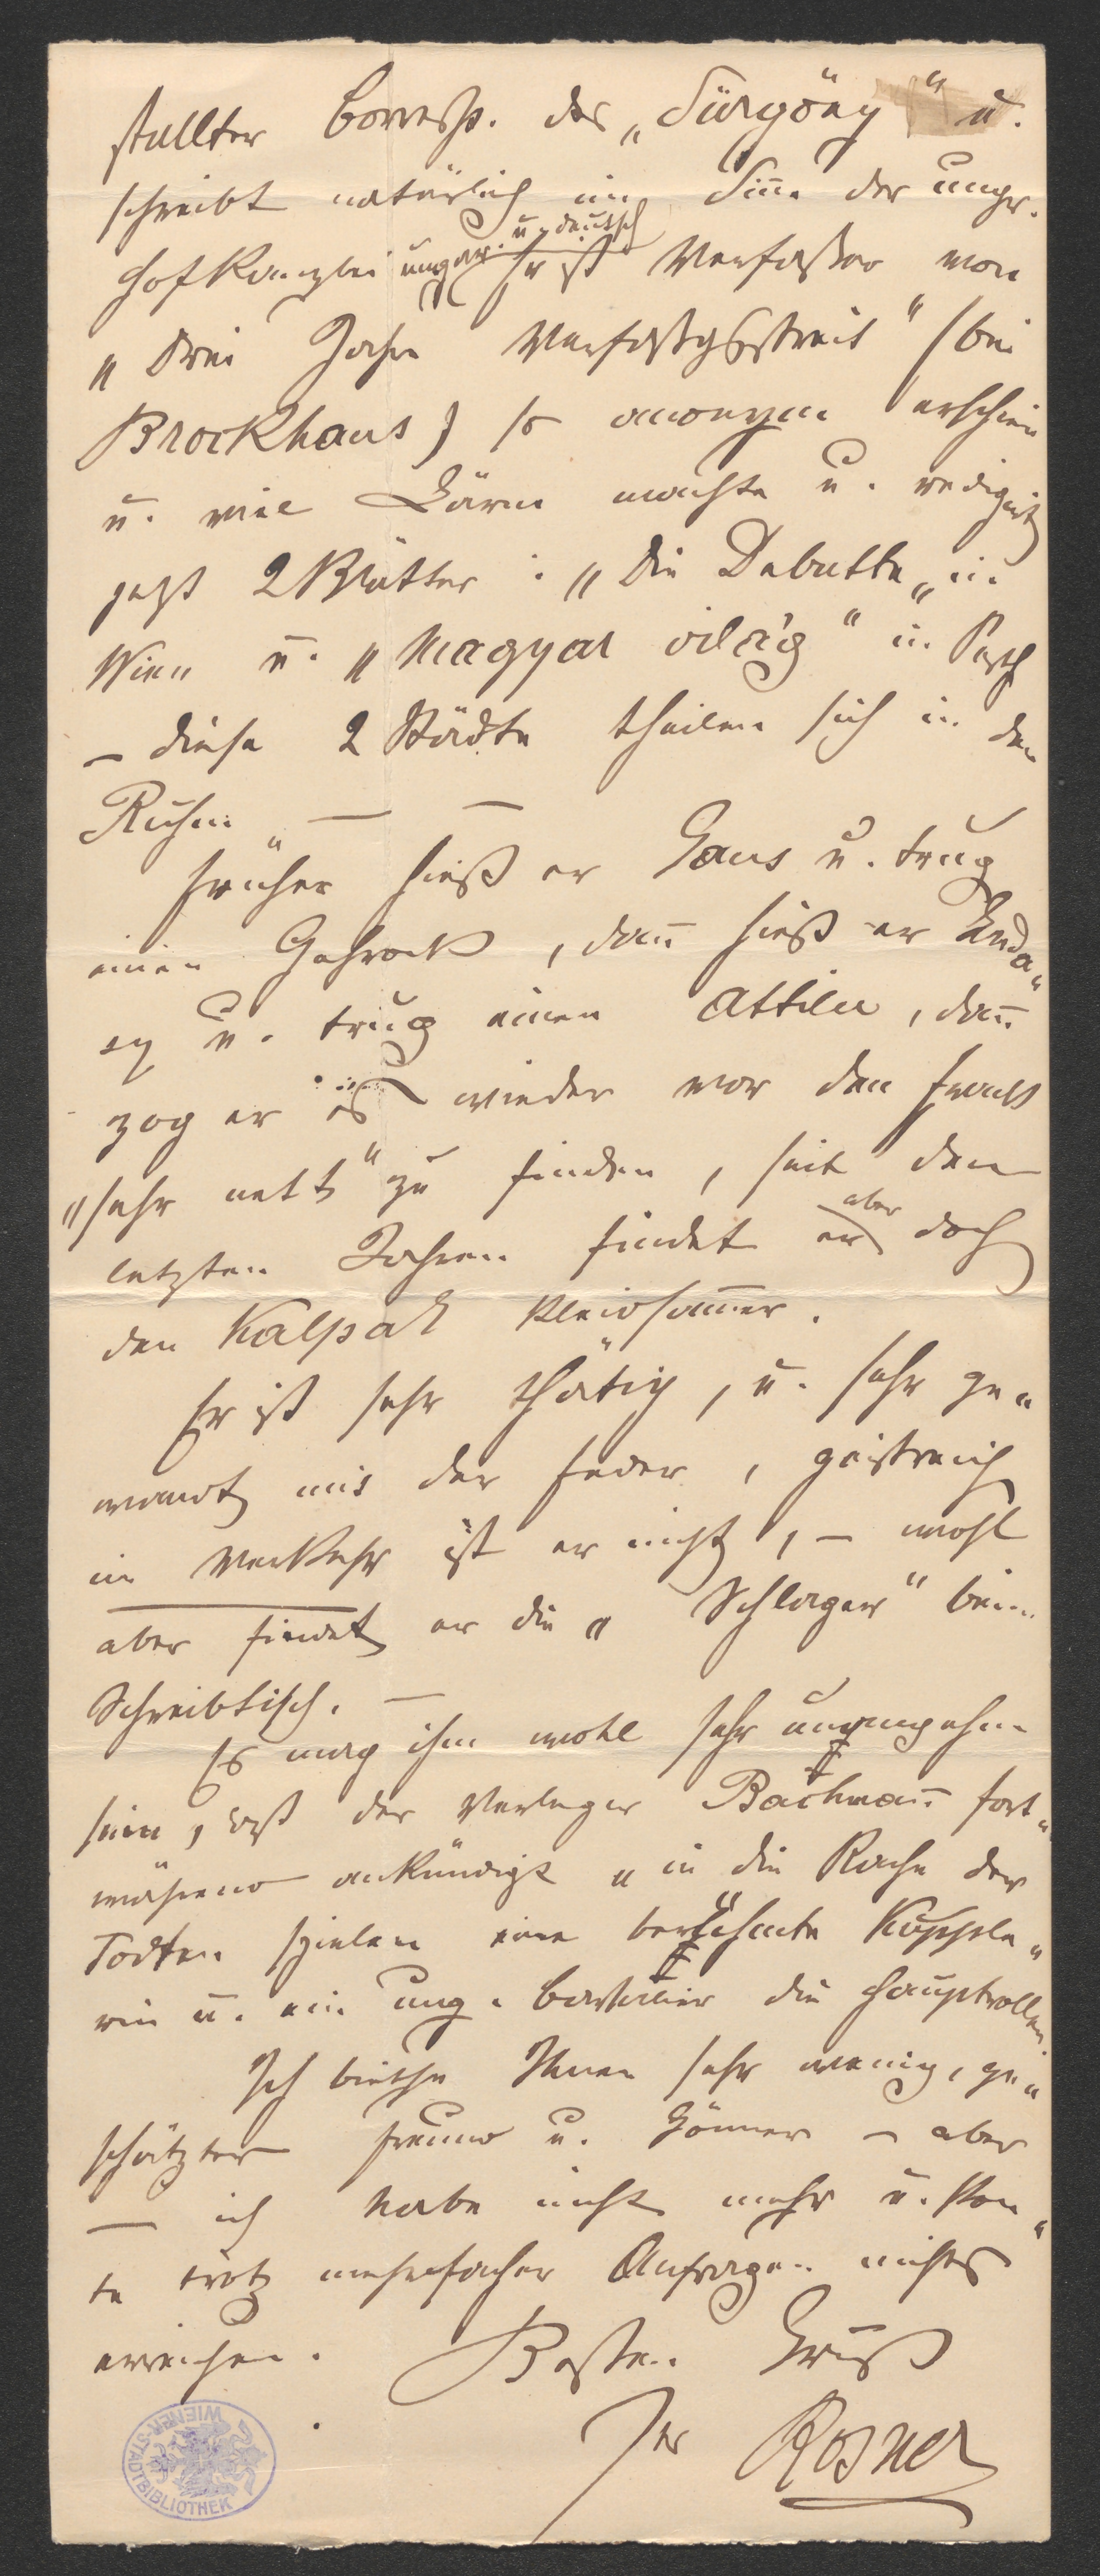 stellter Corresp. des „Sürgöny“ u.
schreibt natürlich im Sinne der ungr.
Hofkanzlei ungar. u. deutsch Er ist Verfasser von
„Drei Jahre Verfassgsstreit“ (bei
Brockhaus) so anonym erschien
u. viel Lärm machte u. redigirt
jetzt 2 Blätter: „Die Debatte„ in
Wien u. „Magyar világ“ in Pesth
– diese 2 Städte theilen sich in den
Ruhm „ — —
Früher hieß er Gans u. trug
einen Gehrock, dann hieß er Luda„
sy u. trug einen Attila, dann
zog er es wieder vor den Frack
„sehr nett“ zu finden, seit den
letzten Jahren findet er aber doch
den Kalpak kleidsamer.
Er ist sehr thätig, u. sehr ge„
wandt mit der Feder, geistreich
im Verkehr ist er nicht, – wohl
aber findet er die „Schlager“ beim
Schreibtisch. —
Es mag ihm wohl sehr unangenehm
sein, daß der Verleger Bachmann fort„
während ankündigt „in die Rache der
Todten spielen eine berühmte Kupple„
rin u. ein ung. Cavalier die Hauptrollen.
Ich biethe Ihnen sehr wenig, ge„
schätzter Freund u. Gönner – aber
— ich habe nicht mehr u. kon„
te trotz mehrfacher Anfragen nichts
erreichen. Besten Gruß
Ihr Rosner
WIENER-STADTBIBLIOTHEK